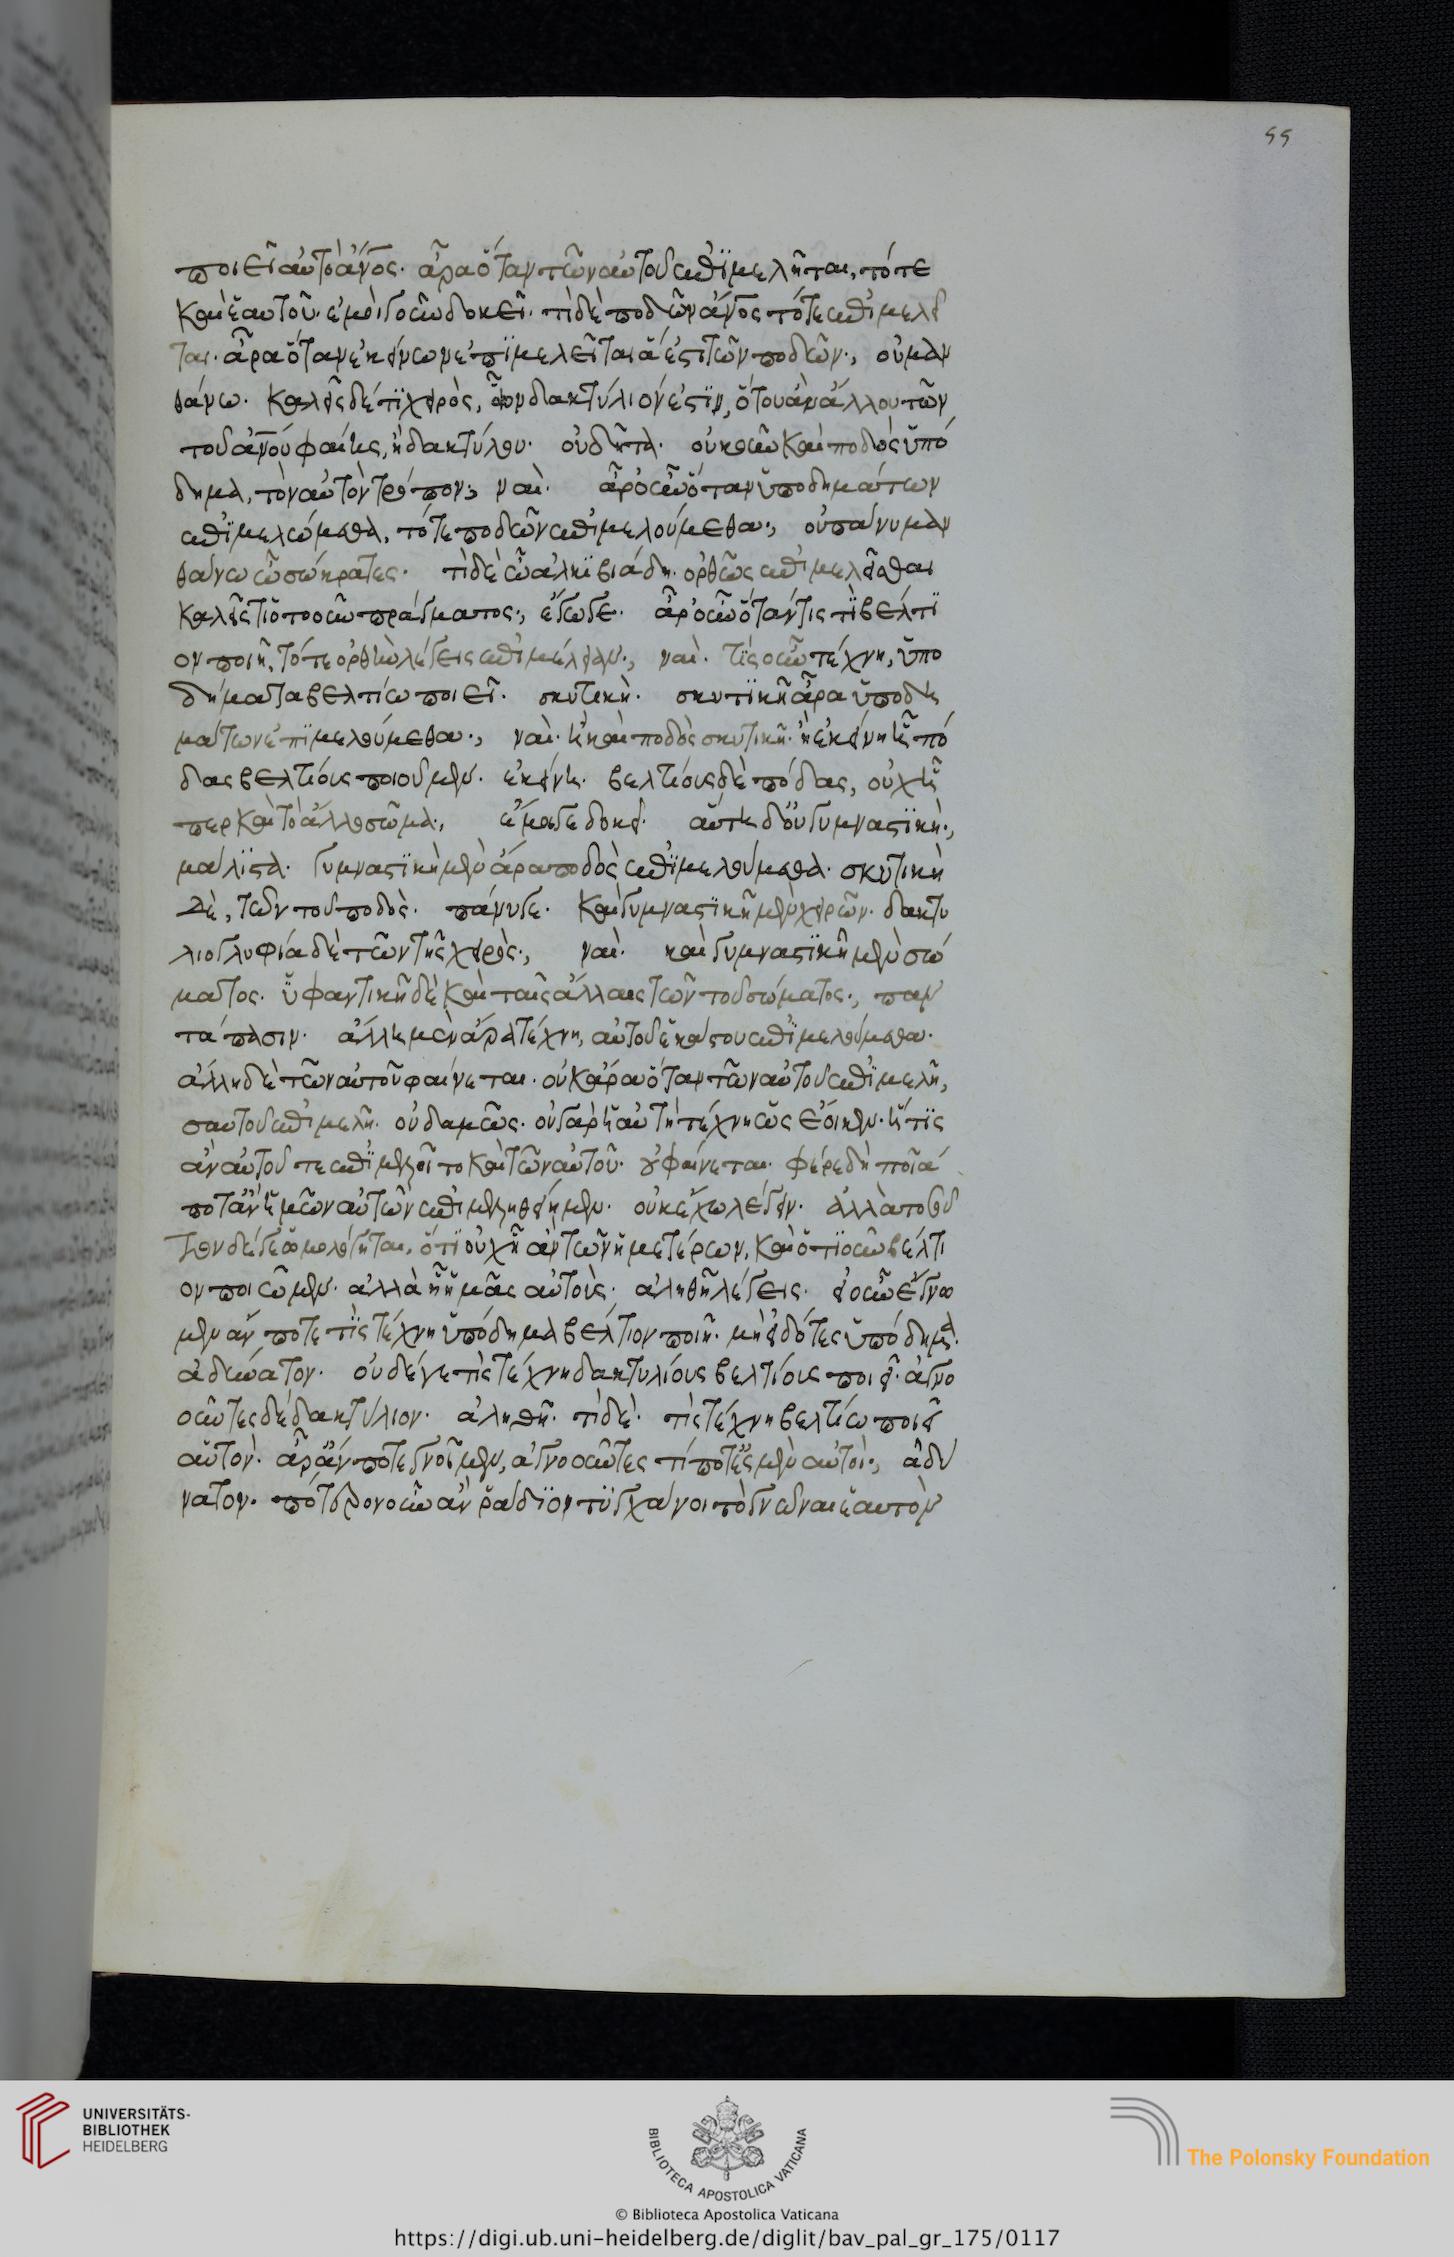 55
ποιεῖ αὐτὸ ἄνος· ἆρα ὅταν τῶν αὑτοῦ ἐπιμελῆται, τότε
καὶ ἑαυτοῦ· ἐμοὶ γοῦν δοκεῖ· τί δὲ ποδῶν ἄνος πότε ἐπιμελεῖ
ται· ἆρα ὅταν ἐκείνων ἐπιμελεῖται ἅ ἐστι τῶν ποδῶν·, οὐ μαν
θάνω· καλεῖς δέ τι χειρὸς, οἷον δακτύλιον ἐστὶν, ὅτου ἂν ἄλλου τῶν
τοῦ ἀνου φαίης, ἢ δακτύλου· οὐδῆτα· οὐκοῦν καὶ ποδὸς ὑπό
δημα, τὸν αὐτὸν τρόπον·, ναί· ἆρ' οὖν ὅταν ὑποδημάτων
ἐπιμελώμεθα, τότε ποδῶν ἐπιμελούμεθα·, οὐ πάνυ μαν
θάνω ὦ σώκρατες· τί δὲ ὦ ἀλκιβιάδη· ὀρθῶς ἐπιμελεῖσθαι
καλεῖς τι ὁτουοῦν πράγματος·, ἔγωγε· ἆρ' οὖν ὅταν τίς τι βέλτι
ον ποιῇ, τότε ὀρθὴν λέγεις ἐπιμέλειαν·, ναί· τίς οὖν τέχνη, ὑπο
δήματα βελτίω ποιεῖ· σκυτικὴ· σκυτικῇ ἄρα ὑποδη
μάτων ἐπιμελούμεθα·, ναί· ἦ καὶ ποδὸς σκυτικῇ· ἢ ἐκείνῃ ᾗ πό
δας βελτίους ποιοῦμεν· ἐκείνῃ· βελτίους δὲ πόδας, οὐχ ᾗ
περ καὶ τὸ ἄλλο σῶμα·, ἔμοιγε δοκεῖ· αὕτη δ' οὐ γυμναστικὴ·,
μάλιστα· γυμναστικῇ μὲν ἄρα ποδὸς ἐπιμελούμεθα· σκυτικῇ
δὲ, τῶν τοῦ ποδὸς· πάνυγε· καὶ γυμναστικῇ μὲν χειρῶν· δακτυ
λιογλυφίᾳ δὲ τῶν τῆς χειρὸς·, ναί· καὶ γυμναστικῇ μὲν σώ
ματος· ὑφαντικῇ δὲ καὶ ταῖς ἄλλαις τῶν τοῦ σώματος·, παν
τάπασιν· ἄλλη μὲν ἄρα τέχνη, αὐτοῦ ἑκάστου ἐπιμελούμεθα·
ἄλλη δὲ τῶν αὐτοῦ φαίνεται· οὐκ ἄρα ὅταν τῶν αὑτοῦ ἐπιμελῇ,
σαυτοῦ ἐπιμελῇ· οὐδαμῶς· οὐ γὰρ ἡ αὐτὴ τέχνη ὡς ἔοικεν· ᾗ τίς
ἂν αὑτοῦ τε ἐπιμελοῖτο καὶ τῶν αὑτοῦ· οὐ φαίνεται· φέρε δὴ ποίᾳ
ποτ' ἂν ἡμῶν αὐτῶν ἐπιμεληθείημεν· οὐκ ἔχω λέγειν· ἀλλὰ τοσοῦ
τον δέ γε ὡμολόγηται, ὅτι οὐχ ᾗ ἂν τῶν ἡμετέρων, καὶ ὁτιοῦν βέλτι
ον ποιῶμεν· ἀλλὰ ᾗ ἡμᾶς αὐτοὺς· ἀληθῆ λέγεις· ἦ οὖν ἔγνω
μεν ἄν ποτε τίς τέχνη ὑπόδημα βέλτιον ποιῇ· μὴ εἰδότες ὑπόδημα·
ἀδύνατον· οὐδέ γε τὶς τέχνη δακτυλίους βελτίους ποιεῖ· ἀγνο
οῦντες δὲ δακτύλιον· ἀληθῆ· τί δέ· τὶς τέχνη βελτίω ποιεῖ
αὐτὸν· ἆρ' ἄν ποτε γνοῖμεν, ἀγνοοῦντες τί ποτ' ἐσμὲν αὐτοὶ·, ἀδύ
νατον· πότερον οὖν ἂν ῥᾴδιον τυγχάνοι τὸ γνῶναι ἑαυτὸν
UNIVERSITÄTS-
BIBLIOTHEK
HEIDELBERG
BIBLIOTECA APOSTOLICA VATICANA
The Polonsky Foundation
© Biblioteca Apostolica Vaticana
https://digi.ub.uni-heidelberg.de/diglit/bav_pal_gr_175/0117